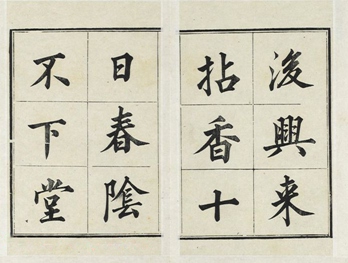 浚興来
拈香十
日春陰
不下堂